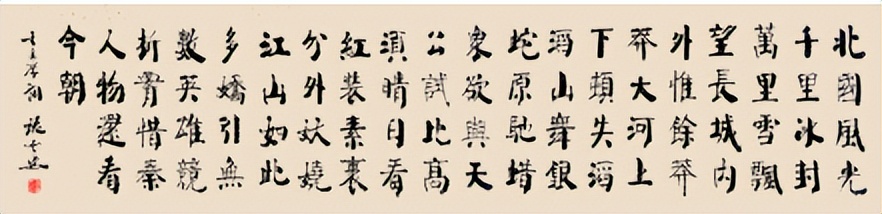 北國風光
千里冰封
萬里雪飄
望長城內
外惟餘莽
莽大河上
下頓失滔
滔山舞銀
蛇原馳蜡
象欲與天
公試比高
須晴日看
紅裝素裹
分外妖嬈
江山如此
多嬌引無
數英雄競
折腰惜秦
人物還看
今朝